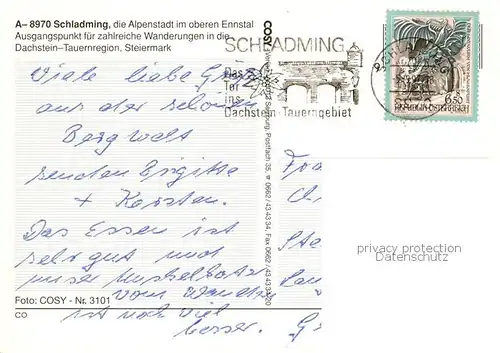 A– 8970 Schladming, die Alpenstadt im oberen Ennstal
Ausgangspunkt für zahlreiche Wanderungen in die
Dachstein–Tauernregion, Steiermark
Viele liebe Grüße
aus der schönen
Bergwelt
senden Brigitte
+ Karsten.
Das Essen ist
sehr gut und
unser
vom
ist noch viel
besser.
Foto: COSY - Nr. 3101
CO
COSY
Salzburg, Postfach 35, 0662/43 43 34, Fax 0662/43 43 34/20
SCHLADMING
Das
Tor
ins
Dachstein-Tauerngebiet
S 6.50
REPUBLIK ÖSTERREICH
privacy protection
Datenschutz